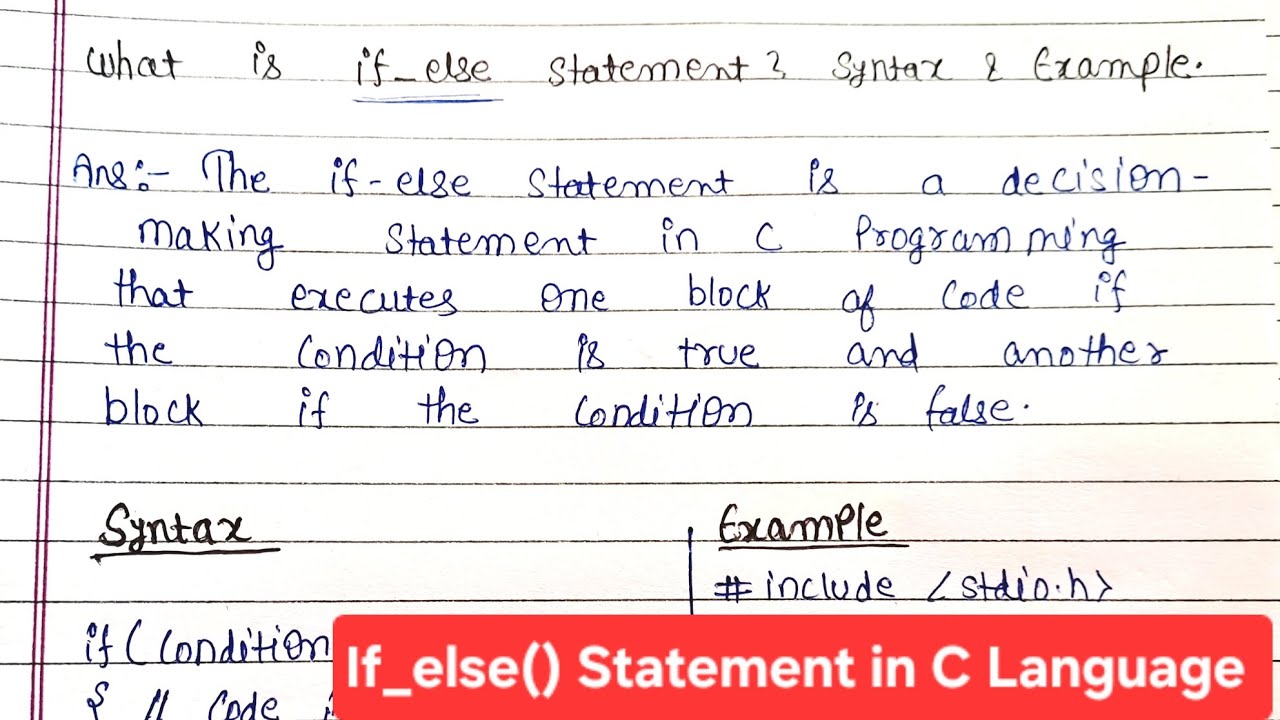 What is if_else Statement? Syntax & Example.
Ans:- The if-else Statement is a decision-
making Statement in C Programming
that executes one block of Code if
the Condition is true and another
block if the Condition is false.
Syntax
if( Condition
{ // Code
Example
# include <stdio.h>
If_else() Statement in C Language